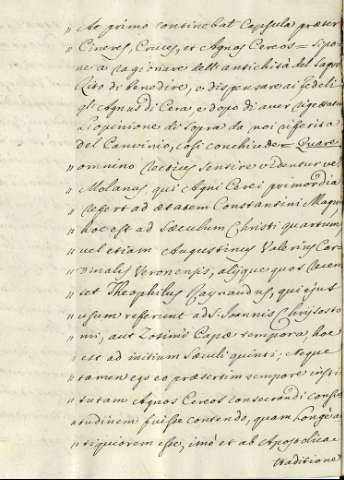 " Ac primo continebat Capsula præter
" Cineres, Cruces, et Agnos Cereos = si po-
ne a ragionare dell'antichità del Sagro
Rito di benedire, e dispensare ai fedeli
gl'Agnus di Cera e dopo di aver rigettata
l'opinione di sopra da noi riferita
del Panvinio, così conchiude = Quare
" omnino rectius sentire videntur vel
" Molanus, qui Agni Cerei primordia
" refert ad ætatem Constantini Magni,
" hoc est ad Sæculum Christi quartum,
" vel etiam Augustinus Valerius Car-
" dinalis Veronensis, alijque quos recen-
" set Theophilus Raynaudus, qui ejus
" usum referunt ad S. Joannis Chrisosto-
" mi, aut Zosimi Papæ tempora, hoc
" est ad initium sæculi quinti; Neque
" tamen ego eo præsertim tempore insti-
" tutam Agnos Cereos consecrandi consu-
" etudinem fuisse contendo, quam longè an-
" tiquiorem esse, imò et ab Apostolica
traditione